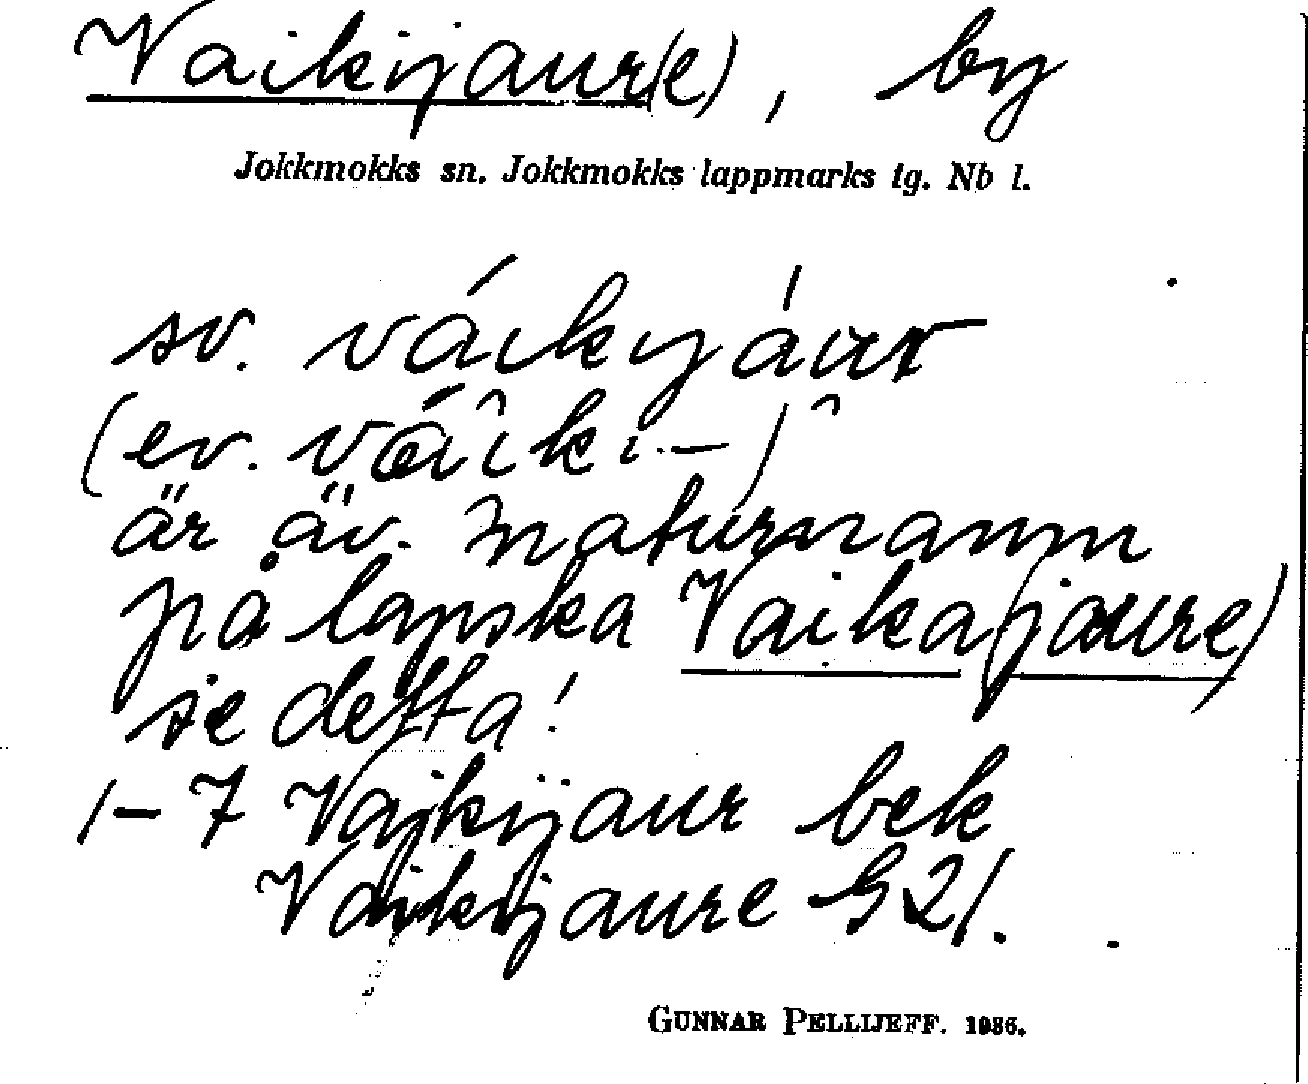 Vaikijaur(e), by
Jokkmokks sn. Jokkmokks lappmarks tg. Nb l.
sv. váikijáur
(ev. váiki-)
är äv. naturnamn
på lapska Vaika(jaure)
se detta!
1-7 Vajkijaur bek
Vaikijaure G21.
GUNNAR PELLIJEFF. 1986.